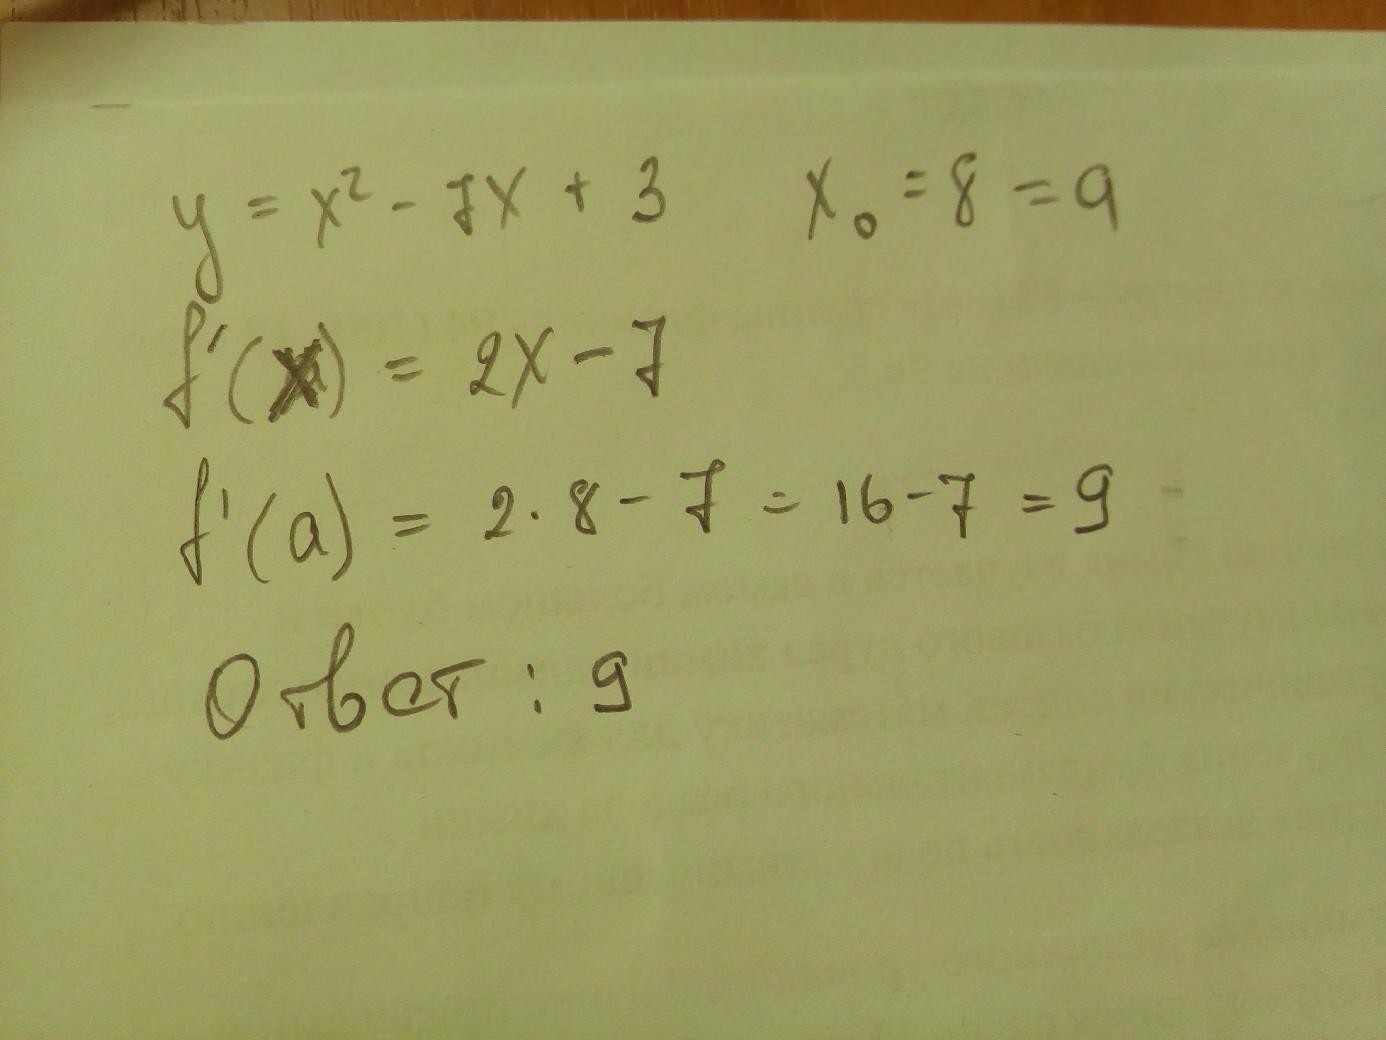 y = x² - 7x + 3 x₀ = 8 = a
f'(x) = 2x - 7
f'(a) = 2·8 - 7 = 16 - 7 = 9
Ответ: 9